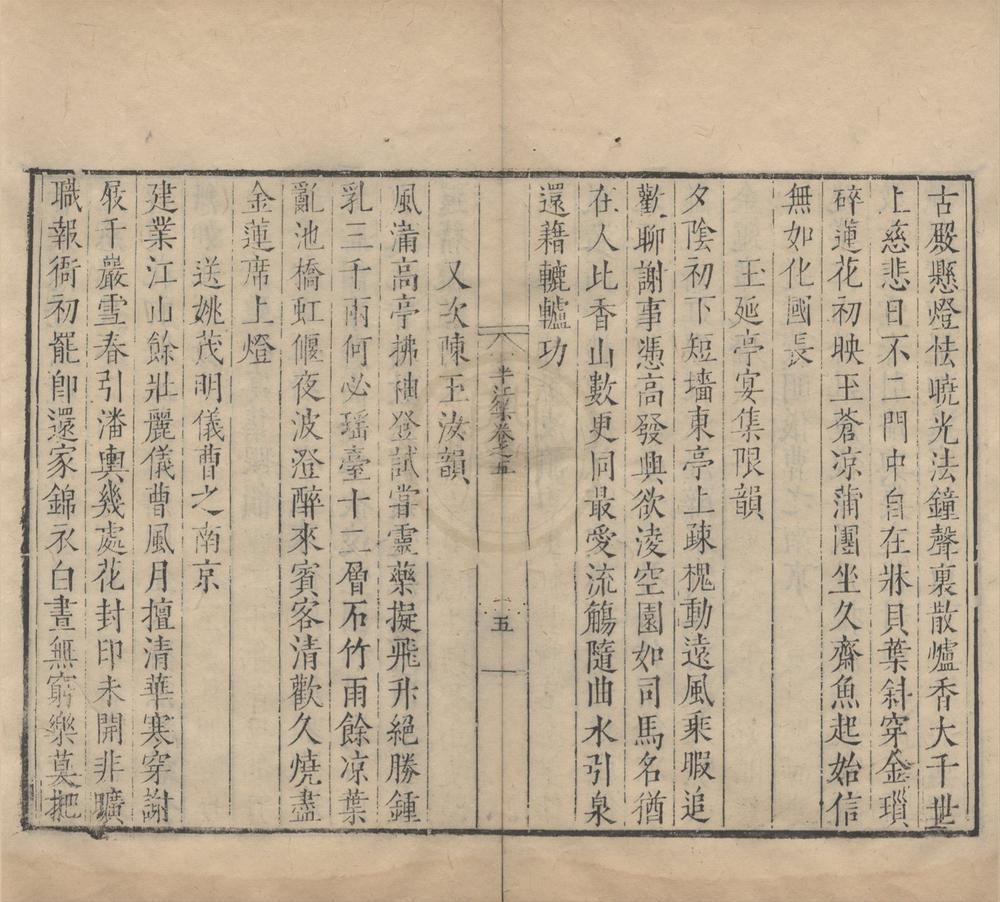 古殿懸燈怯曉光法鐘聲裏散爐香大千世
上慈悲日不二門中自在牀貝葉斜穿金瑣
碎蓮花初映玉蒼凉蒲團坐久齋魚起始信
無如化國長
玉延亭宴集限韻
夕陰初下短墻東亭上疎槐動遠風乘暇追
歡聊謝事憑高發興欲淩空園如司馬名猶
在人比香山數更同最愛流觴隨曲水引泉
還藉轆轤功
又次陳玉汝韻
半江集卷之五
五
風滿高亭拂袖登試嘗靈藥擬飛升絕勝鍾
乳三千兩何必瑶臺十二層石竹雨餘凉葉
亂池橋虹偃夜波澄醉來賓客清歡久燒盡
金蓮席上燈
送姚茂明儀曹之南京
建業江山餘壯麗儀曹風月擅清華寒穿謝
屐千巖雪春引潘輿幾處花封印未開非曠
職報衙初罷卽還家錦衣白晝無窮樂莫把